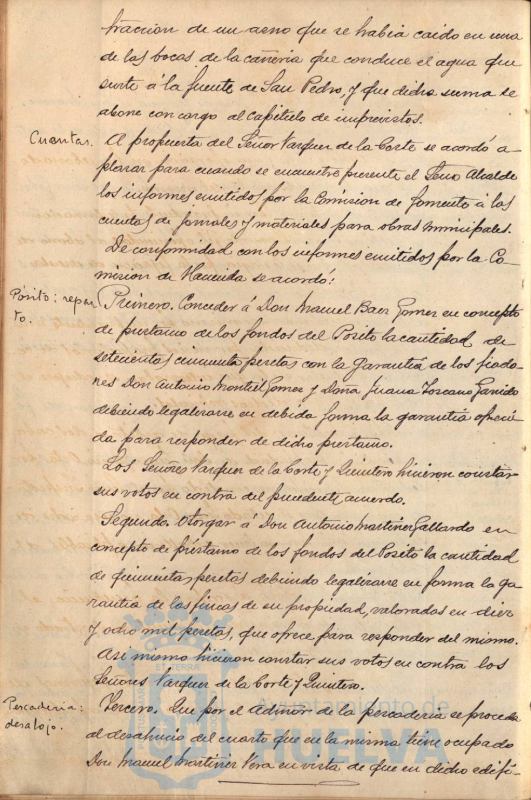 traccion de un asno que se habia caido en una
de las bocas de la cañeria que conduce el agua que
surte á la fuente de San Pedro, y que dicha suma se
abone con cargo al capitulo de imprevistos.
Cuentas. A propuesta del Señor Vazquez de la Corte se acordó a-
plazar para cuando se encuentre presente el Señor Alcalde
los informes emitidos por la Comision de Fomento á las
cuentas de jornales y materiales para obras municipales.
De conformidad con los informes emitidos por la Co-
mision de Hacienda se acordó:
Pósito: repar
to.
Primero. Conceder á Don Manuel Baez Gomez en concepto
de prestamo de los fondos del Posito la cantidad de
setecientas cincuenta pesetas con la garantia de los fiado-
res Don Antonio Montiel Gomez y Doña Juana Toscano Garrido
debiendo legalizarse en debida forma la garantia ofreci-
da para responder de dicho prestamo.
Los Señores Vazquez de la Corte y Quintero hicieron constar
sus votos en contra del precedente acuerdo.
Segundo. Otorgar á Don Antonio Martinez Gallardo en
concepto de préstamo de los fondos del Posito la cantidad
de quinientas pesetas debiendo legalizarse en forma la ga-
rantia de las fincas de su propiedad, valoradas en diez
y ocho mil pesetas, que ofrece para responder del mismo.
Asi mismo hicieron constar sus votos en contra los
Señores Vazquez de la Corte y Quintero.
Pescaderia:
desalojo.
Tercero. Que por el Admor de la pescaderia se proceda
al desahucio del cuarto que en la misma tiene ocupado
Don Manuel Martinez Vera en vista de que en dicho edifi-
Ayuntamiento de
HUELVA